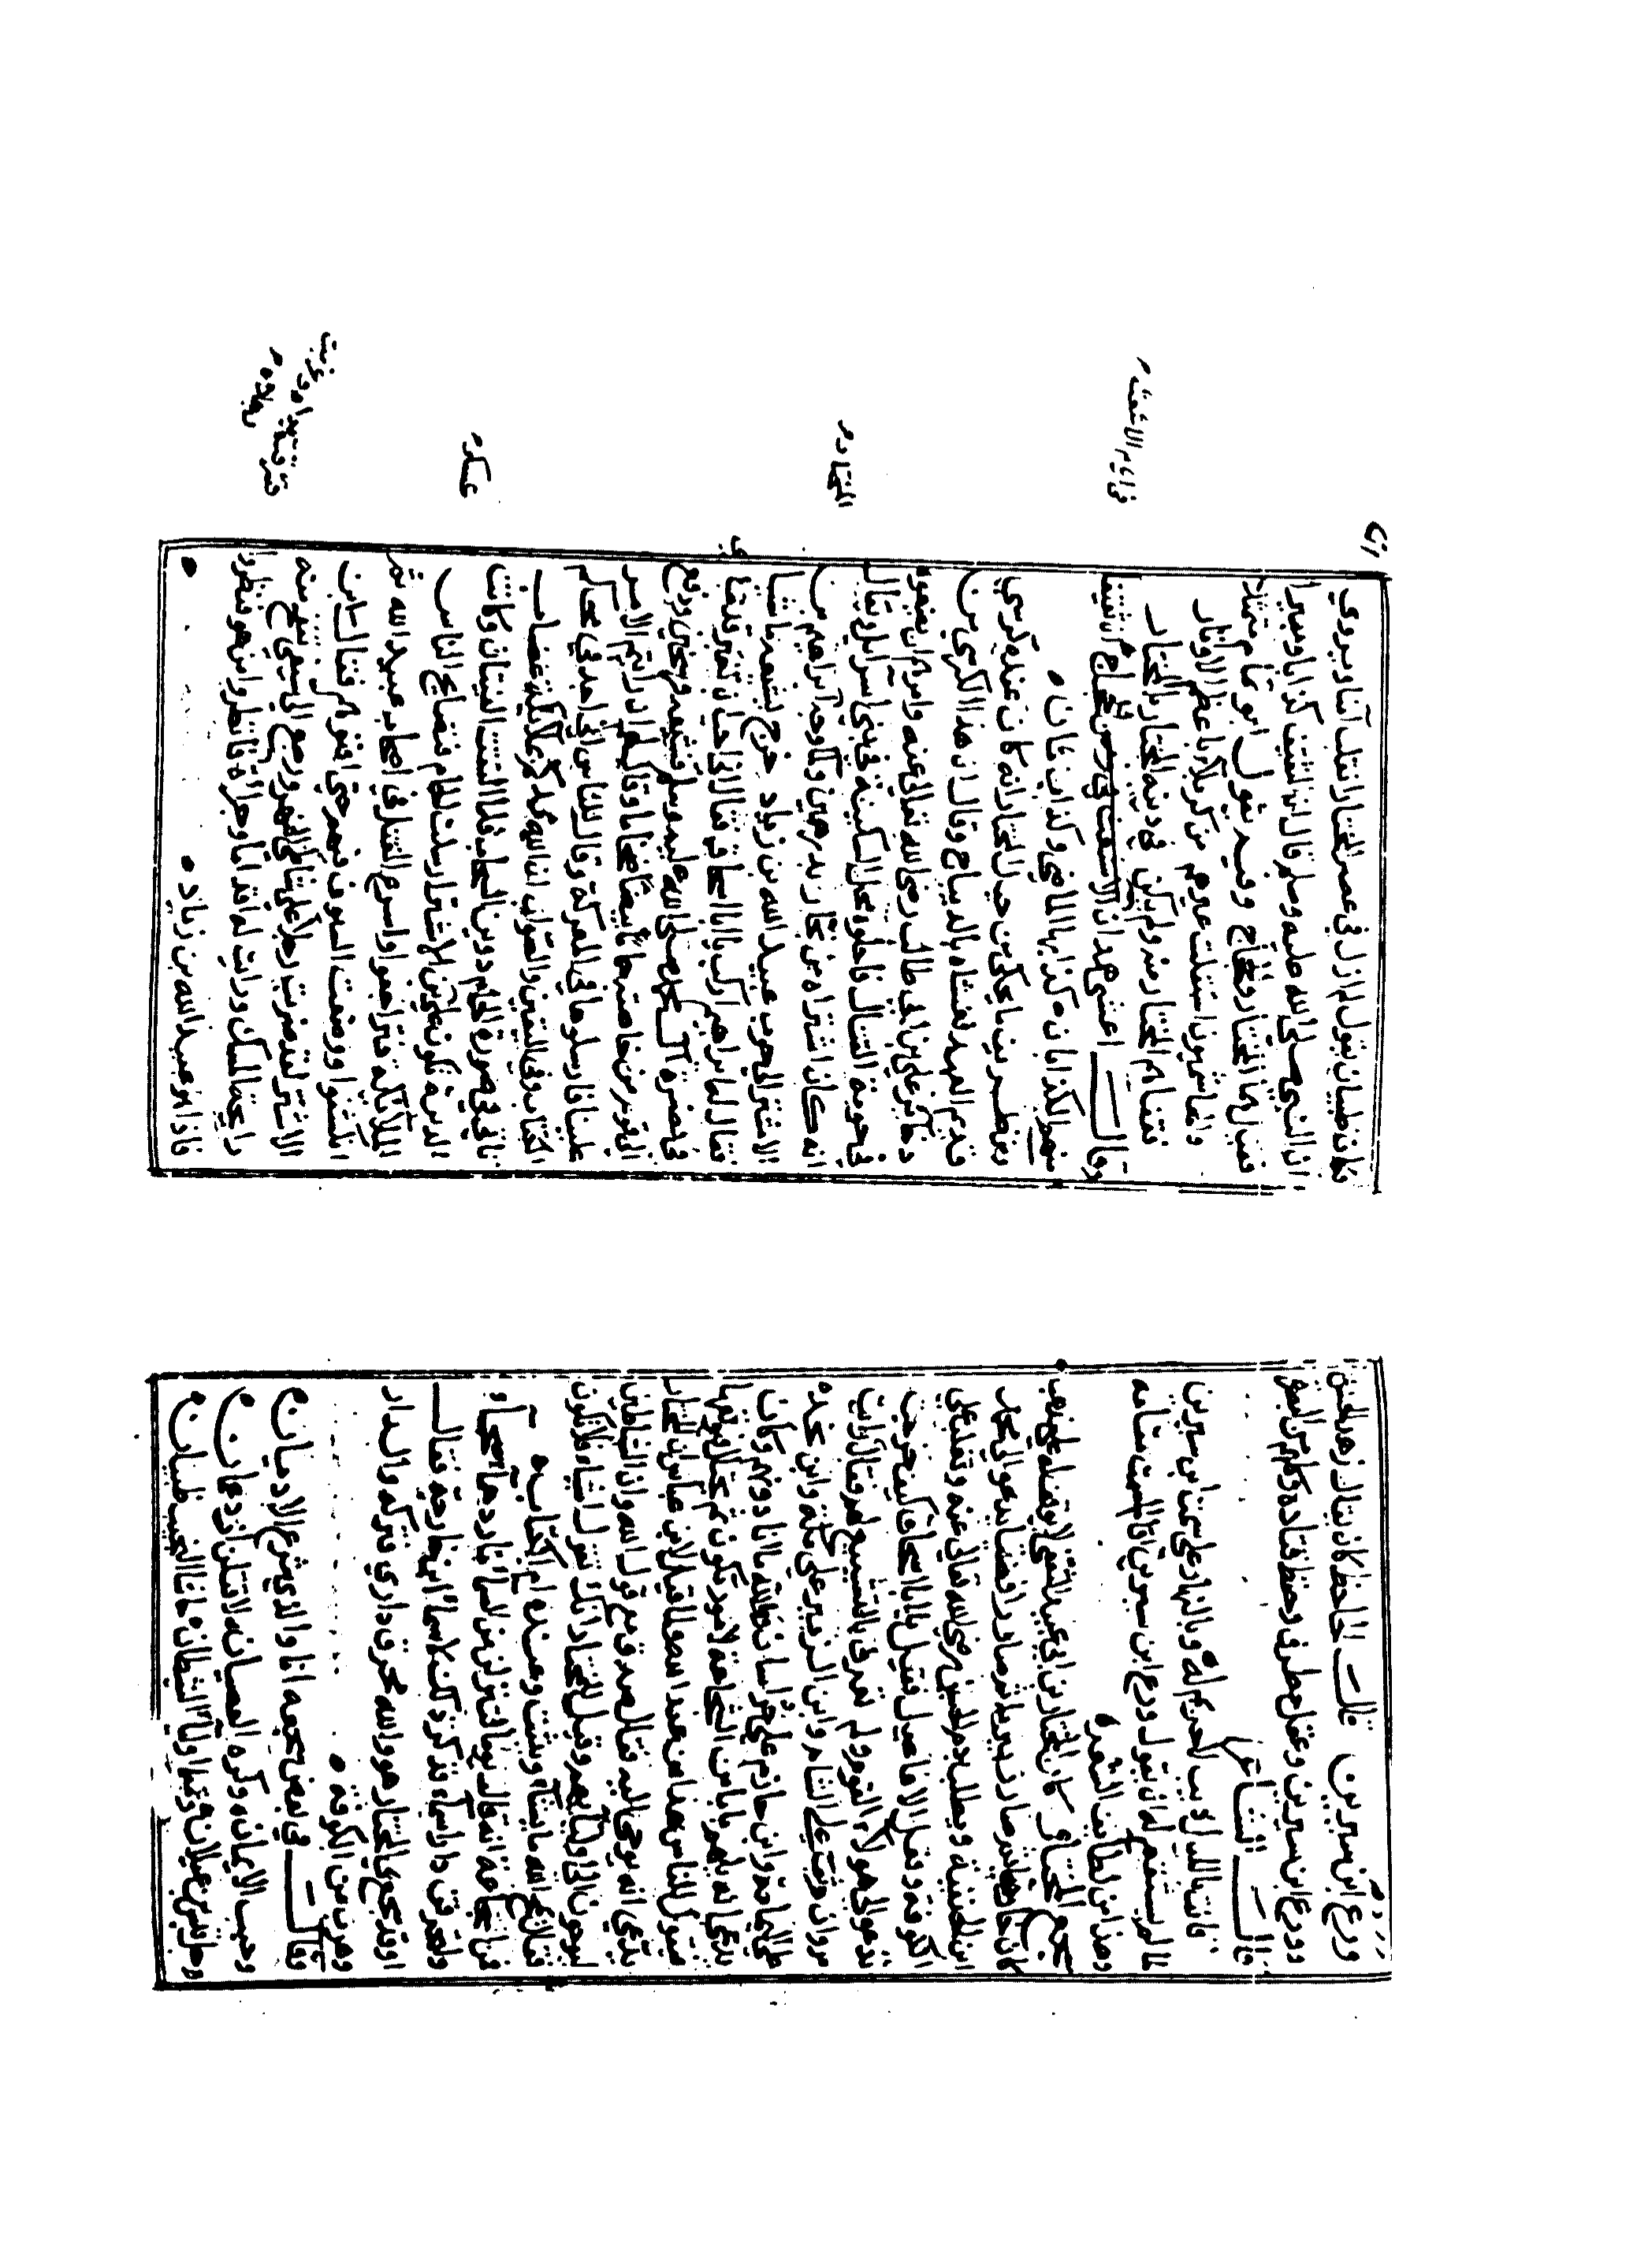 ورع ابن سيرين قال الجاحظ كان يقال زهد الحسن
وورع ابن سيرين وعقل مطرف وحفظ قتاده وكلهم من البصر
قال الشاعر
فانت بالليل ذئب لا حريم له وبالنهار على سمت ابن سيرين
لما لم يستقم له ان يقول ورع ابن سيرين اقام السمت مقامه
وهذا من لطايف الشعر
المختار كان المختار بن ابي عبيد الثقفي لا يوقف له على مذهب
كان خارجيا ثم صار زبيريا ثم صار رافضيا يدعو الى محمد
ابن الحنفية ويطلب بدم الحسين رضي الله تعالى عنه وتغلب على
الكوفة وقتل الافاضل فقيل يا ابا اسحاق كيف خرجت
تدعو الى هولاء القوم ولم تعرف بالتشيع لهم فقال رايت
مروان وثب على الشام وابن الزبير على مكة وابن نجده
على اليمامة وابن حازم على خراسان والله ما انا دونهم وكان
يدعي انه يلهم من الشجاعة لامور تكون ثم
فيقول للناس هذا من عند الله فقيل لابن عباس ان المختار
يدعي انه يوحى اليه فقال صدق مع قول الله وان الشياطين
ليوحون الى اوليائهم وقيل للمختار انك تقول اشياء فلا تكون
فتلا يمحو الله ما يشاء ويثبت وعنده ام الكتاب
من اسماء بن خارجة
ولتحرق دار اسماء فذكر ذلك لاسماء بن خارجة فقال
اوقد سجع بي المختار هو والله محرق داري فتركه والدار
وهرب من الكوفة
وقال في بعض سجعه اما والذي شرع الاديان
وحبب الايمان وكره العصيان لاقتلن ازد عمان
وجل قيس عيلان وتميما اولياء الشيطان حاشا النجيب ظبيان
فكان ظبيان يقول لم ازل في عصر المختار اتقلب آمنا ويروي
ان النبي صلى الله عليه وسلم قال ان في ثقيف كذابا ومبيرا
فقيل انهما المختار والحجاج وفيه يقول ابو تمام
والهاشميون استقلت عيرهم من كربلاء باعظم الاوتار
فشفاهم المختار منه ولم يكن في دينه المختار بالمختار
وقال اعشى همدان
منهم الكذابان كذابها الماضي وكذاب ثان
ومن طريف ما يحكى من حيل المختار انه كان عنده كرسي
قديم العهد فغشاه بالديباج وقال ان هذا الكرسي من
ذخاير علي بن ابي طالب رضي الله تعالى عنه وامرهم ان يضعوه
في حومة القتال فان محله محل السكينة في بني اسرائيل ويقال
انه كان اشتراه من نجار بدرهمين ولما وجه ابراهيم بن
الاشتر الى حرب عبيد الله بن زياد خرج يشيعه ماشيا
فقال له ابراهيم اركب يا ابا اسحاق فقال اني احب ان تغبر قدماي
في نصرة آل محمد صلى الله عليه وسلم فشيعه فرسخين ودفع
الى قوم من خاصته حماما بيضا ضخاما وقال لهم ان رايتم الامر
علينا فارسلوها في المعركة وقال للناس اني اجد في محكم
الكتاب وفي اليقين والصواب ان الله ممدكم بملائكة غضاب
تاتي في صورة الحمام دوين السحاب فلما التقت الفئتان وكانت
الدبرة تكون على ابن الاشتر ارسلت الحمام فتصايح الناس
الملائكة فتراجعوا واسرع القتل في اصحاب عبيد الله ثم
انكشفوا ووضعت السيوف فيهم حتى افنوهم فقال ابن
الاشتر لقد ضربت رجلا على شاطئ النهر ورجع الي سيفي فيه
رايحة المسك ورايت له اقداما وجراة فانظروا من هو فنظروا
فاذا هو عبيد الله بن زياد
المختار م
عسكره